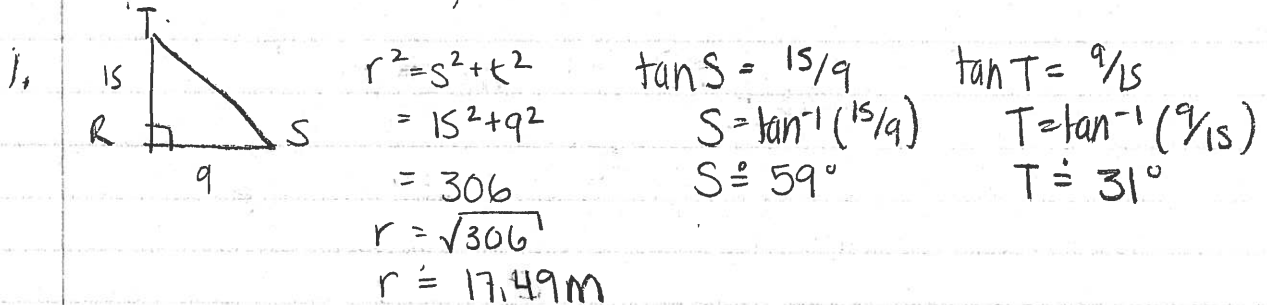 1.
T
15
R
S
9
r²=s²+t²
= 15²+9²
= 306
r = √306
r ≐ 17.49m
tan S = 15/9
S = tan⁻¹(15/9)
S ≐ 59°
tan T = 9/15
T = tan⁻¹(9/15)
T ≐ 31°